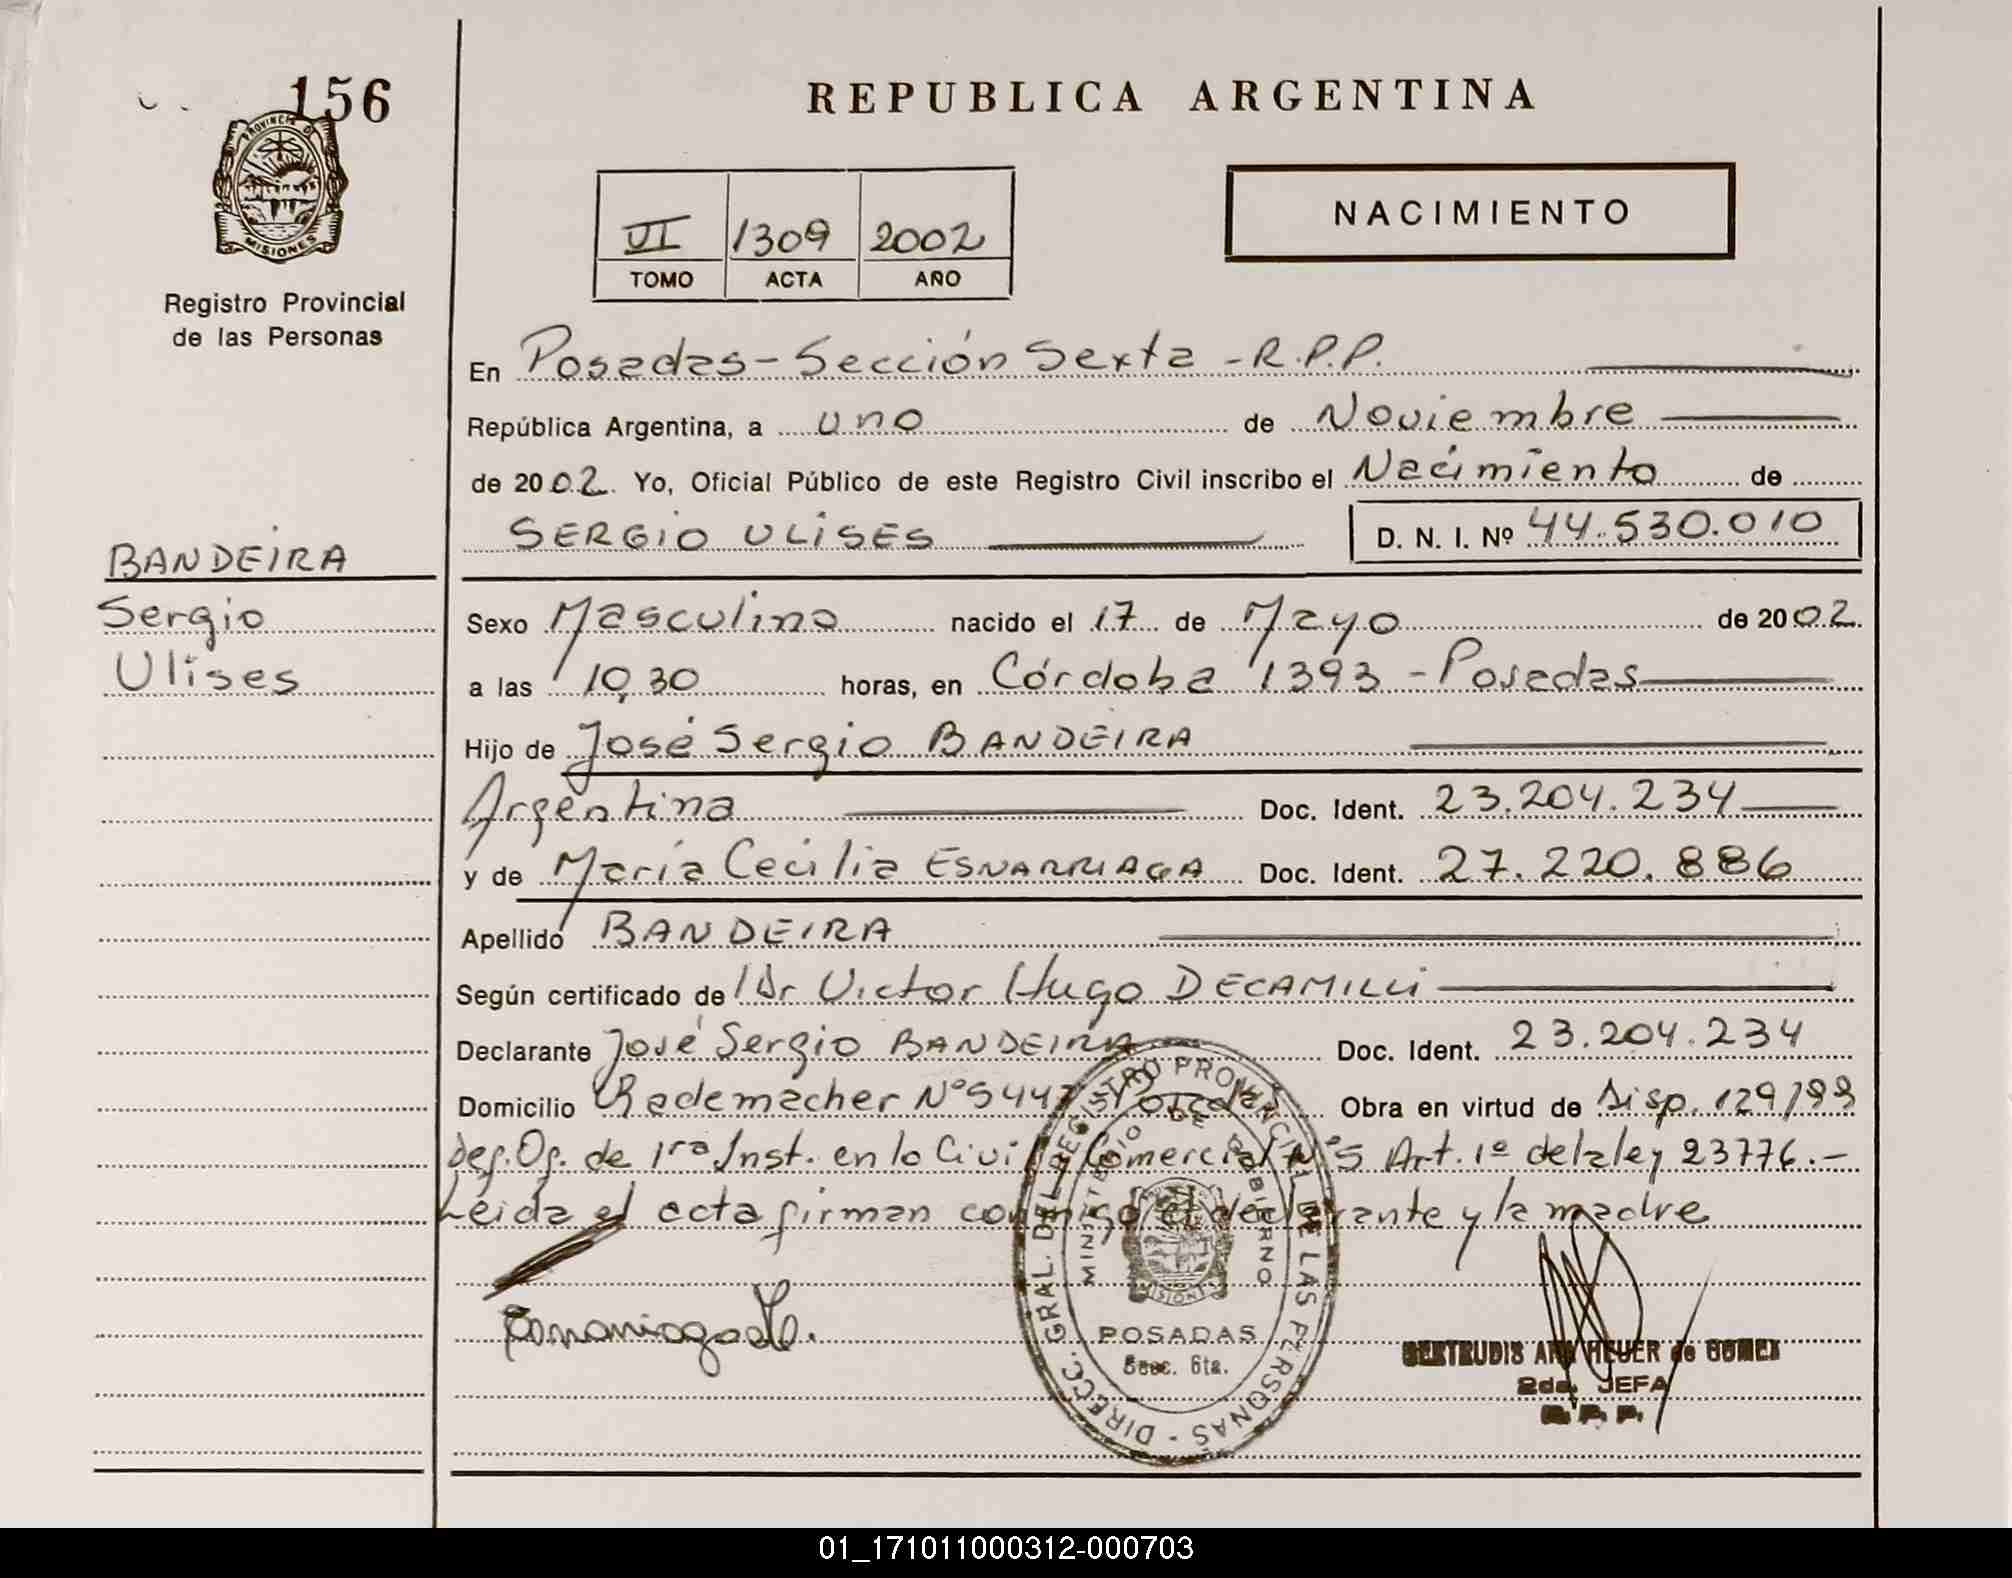 156
PROVINCIA DE
MISIONES
Registro Provincial
de las Personas
BANDEIRA
Sergio
Ulises
REPUBLICA ARGENTINA
VI 1309 2002
TOMO ACTA AÑO
NACIMIENTO
En Posadas - Sección Sexta - R.P.P.
República Argentina, a uno de Noviembre
de 2002. Yo, Oficial Público de este Registro Civil inscribo el Nacimiento de
SERGIO ULISES D. N. I. Nº 44.530.010
Sexo Masculino nacido el 17 de Mayo de 2002.
a las 10,30 horas, en Córdoba 1393 - Posadas
Hijo de José Sergio BANDEIRA
Argentina Doc. Ident. 23.204.234
y de María Cecilia ESNARRIAGA Doc. Ident. 27.220.886
Apellido BANDEIRA
Según certificado de Dr Victor Hugo DECAMILLI
Declarante José Sergio BANDEIRA Doc. Ident. 23.204.234
Domicilio Rademacher Nº 5447 Posadas Obra en virtud de Disp. 129/99
Def. Of. de 1ra Inst. en lo Civil Comercial Nº5 Art. 1º de la ley 23776.-
Leida el acta firman conmigo el declarante y la madre
DIRECC. GRAL. DEL REGISTRO PROVINCIAL DE LAS PERSONAS -
MINISTERIO DE GOBIERNO
MISIONES
POSADAS
Secc. 6ta.
GERTRUDIS ANA HEUER de GOMEZ
2da. JEFA
R. P. P.
01_171011000312-000703